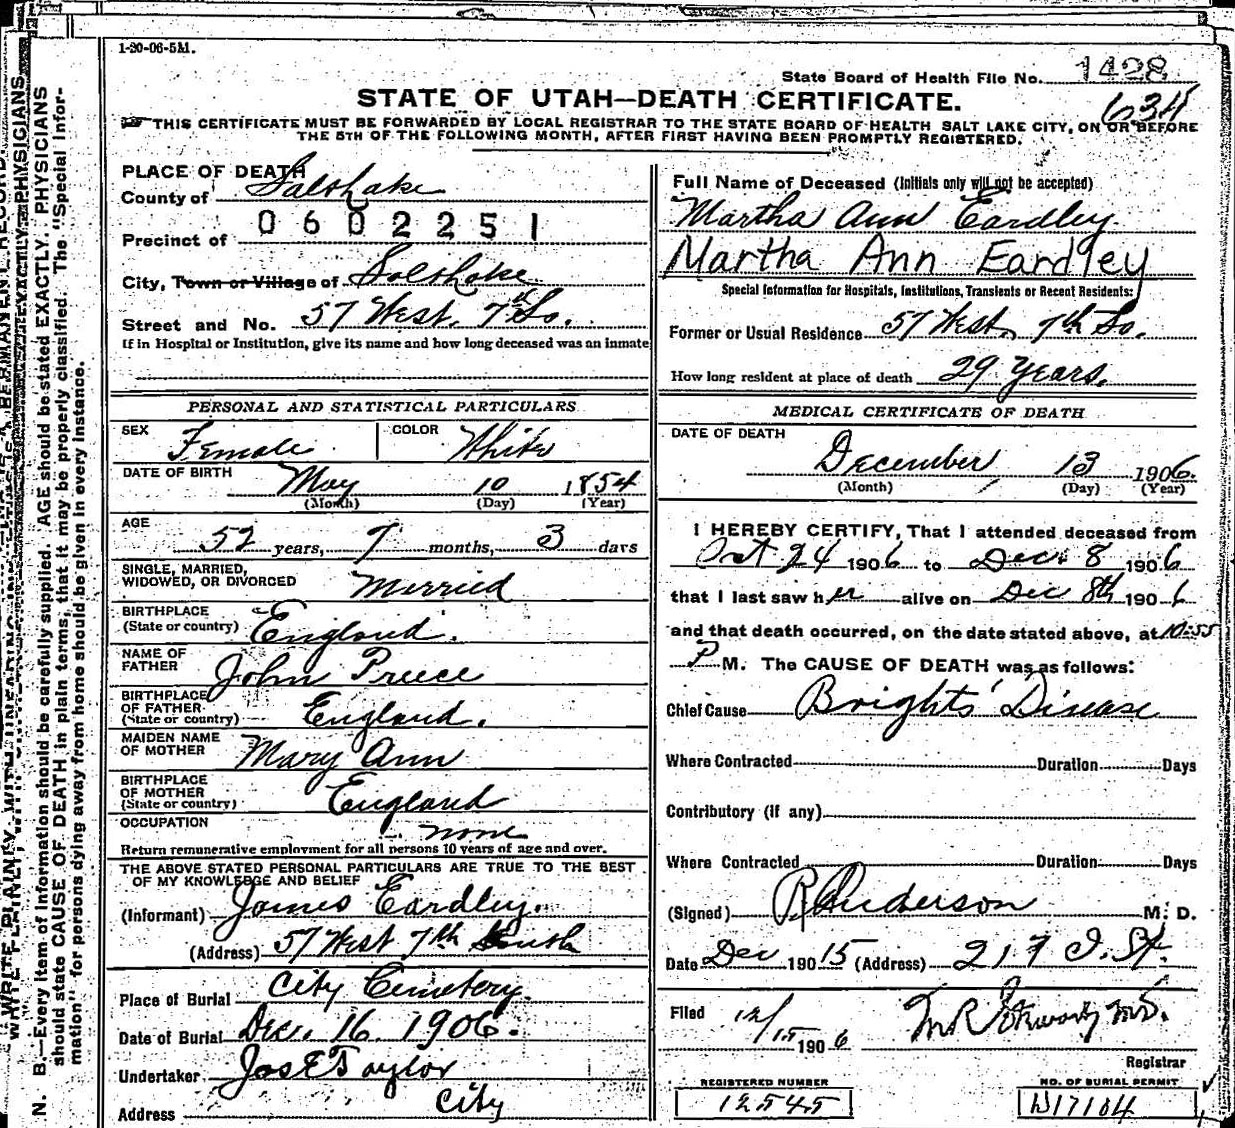 1-20-06-5M.
State Board of Health File No. 1428
STATE OF UTAH—DEATH CERTIFICATE.
634
THIS CERTIFICATE MUST BE FORWARDED BY LOCAL REGISTRAR TO THE STATE BOARD OF HEALTH SALT LAKE CITY, ON OR BEFORE
THE 5TH OF THE FOLLOWING MONTH, AFTER FIRST HAVING BEEN PROMPTLY REGISTERED.
PLACE OF DEATH
County of Salt Lake
0602251
Precinct of
City, Town or Village of Salt Lake
Street and No. 57 West. 7th So.
If in Hospital or Institution, give its name and how long deceased was an inmate
PERSONAL AND STATISTICAL PARTICULARS
SEX Female COLOR White
DATE OF BIRTH May 10 1854
(Month) (Day) (Year)
AGE 52 years, 7 months, 3 days
SINGLE, MARRIED,
WIDOWED, OR DIVORCED Married
BIRTHPLACE
(State or country) England.
NAME OF
FATHER John Preece
BIRTHPLACE
OF FATHER
(State or country) England.
MAIDEN NAME
OF MOTHER Mary Ann
BIRTHPLACE
OF MOTHER
(State or country) England
OCCUPATION none
Return remunerative employment for all persons 10 years of age and over.
THE ABOVE STATED PERSONAL PARTICULARS ARE TRUE TO THE BEST
OF MY KNOWLEDGE AND BELIEF
(Informant) James Eardley.
(Address) 57 West 7th South
Place of Burial City Cemetery.
Date of Burial Dec. 16. 1906.
Undertaker Jos E Taylor
Address City
Full Name of Deceased (Initials only will not be accepted)
Martha Ann Eardley
Martha Ann Eardley
Special Information for Hospitals, Institutions, Transients or Recent Residents:
Former or Usual Residence 57 West, 7th So.
How long resident at place of death 29 Years.
MEDICAL CERTIFICATE OF DEATH
DATE OF DEATH
December 13 1906.
(Month) (Day) (Year)
I HEREBY CERTIFY, That I attended deceased from
Oct 24 1906 to Dec. 8 1906
that I last saw her alive on Dec 8th 1906
and that death occurred, on the date stated above, at 10-55
P M. The CAUSE OF DEATH was as follows:
Chief Cause Brights' Disease
Where Contracted Duration Days
Contributory (if any)
Where Contracted Duration Days
(Signed) Anderson M. D.
Date Dec 190 15 (Address) 217 J. St.
Filed 12/15 1906
Registrar
REGISTERED NUMBER
12545
NO. OF BURIAL PERMIT
D17104
N. B.—Every item of information should be carefully supplied. AGE should be stated EXACTLY. PHYSICIANS
should state CAUSE OF DEATH in plain terms, that it may be properly classified. The "Special Infor-
mation" for persons dying away from home should be given in every instance.